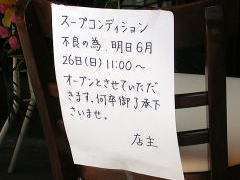 スープコンディション
不良の為、明日6月
26日(日)11:00～
オープンとさせていただ
きます。何卒御了承下
さいませ。
店主